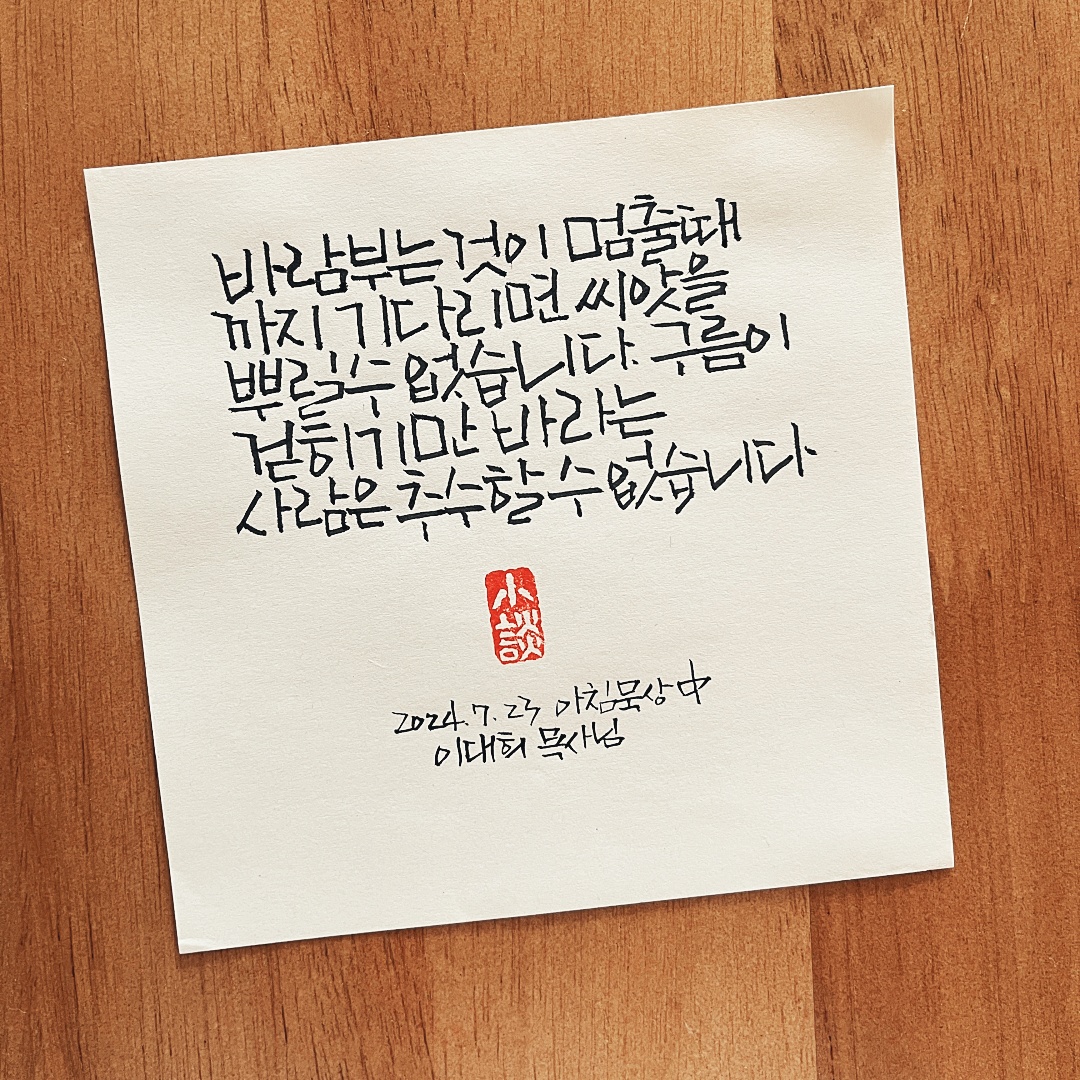 바람부는 것이 멈출때
까지 기다리면 씨앗을
뿌릴수 없습니다. 구름이
걷히기만 바라는
사람은 추수할 수 없습니다.
小談
2024.7.23 아침묵상 中
이대희 목사님